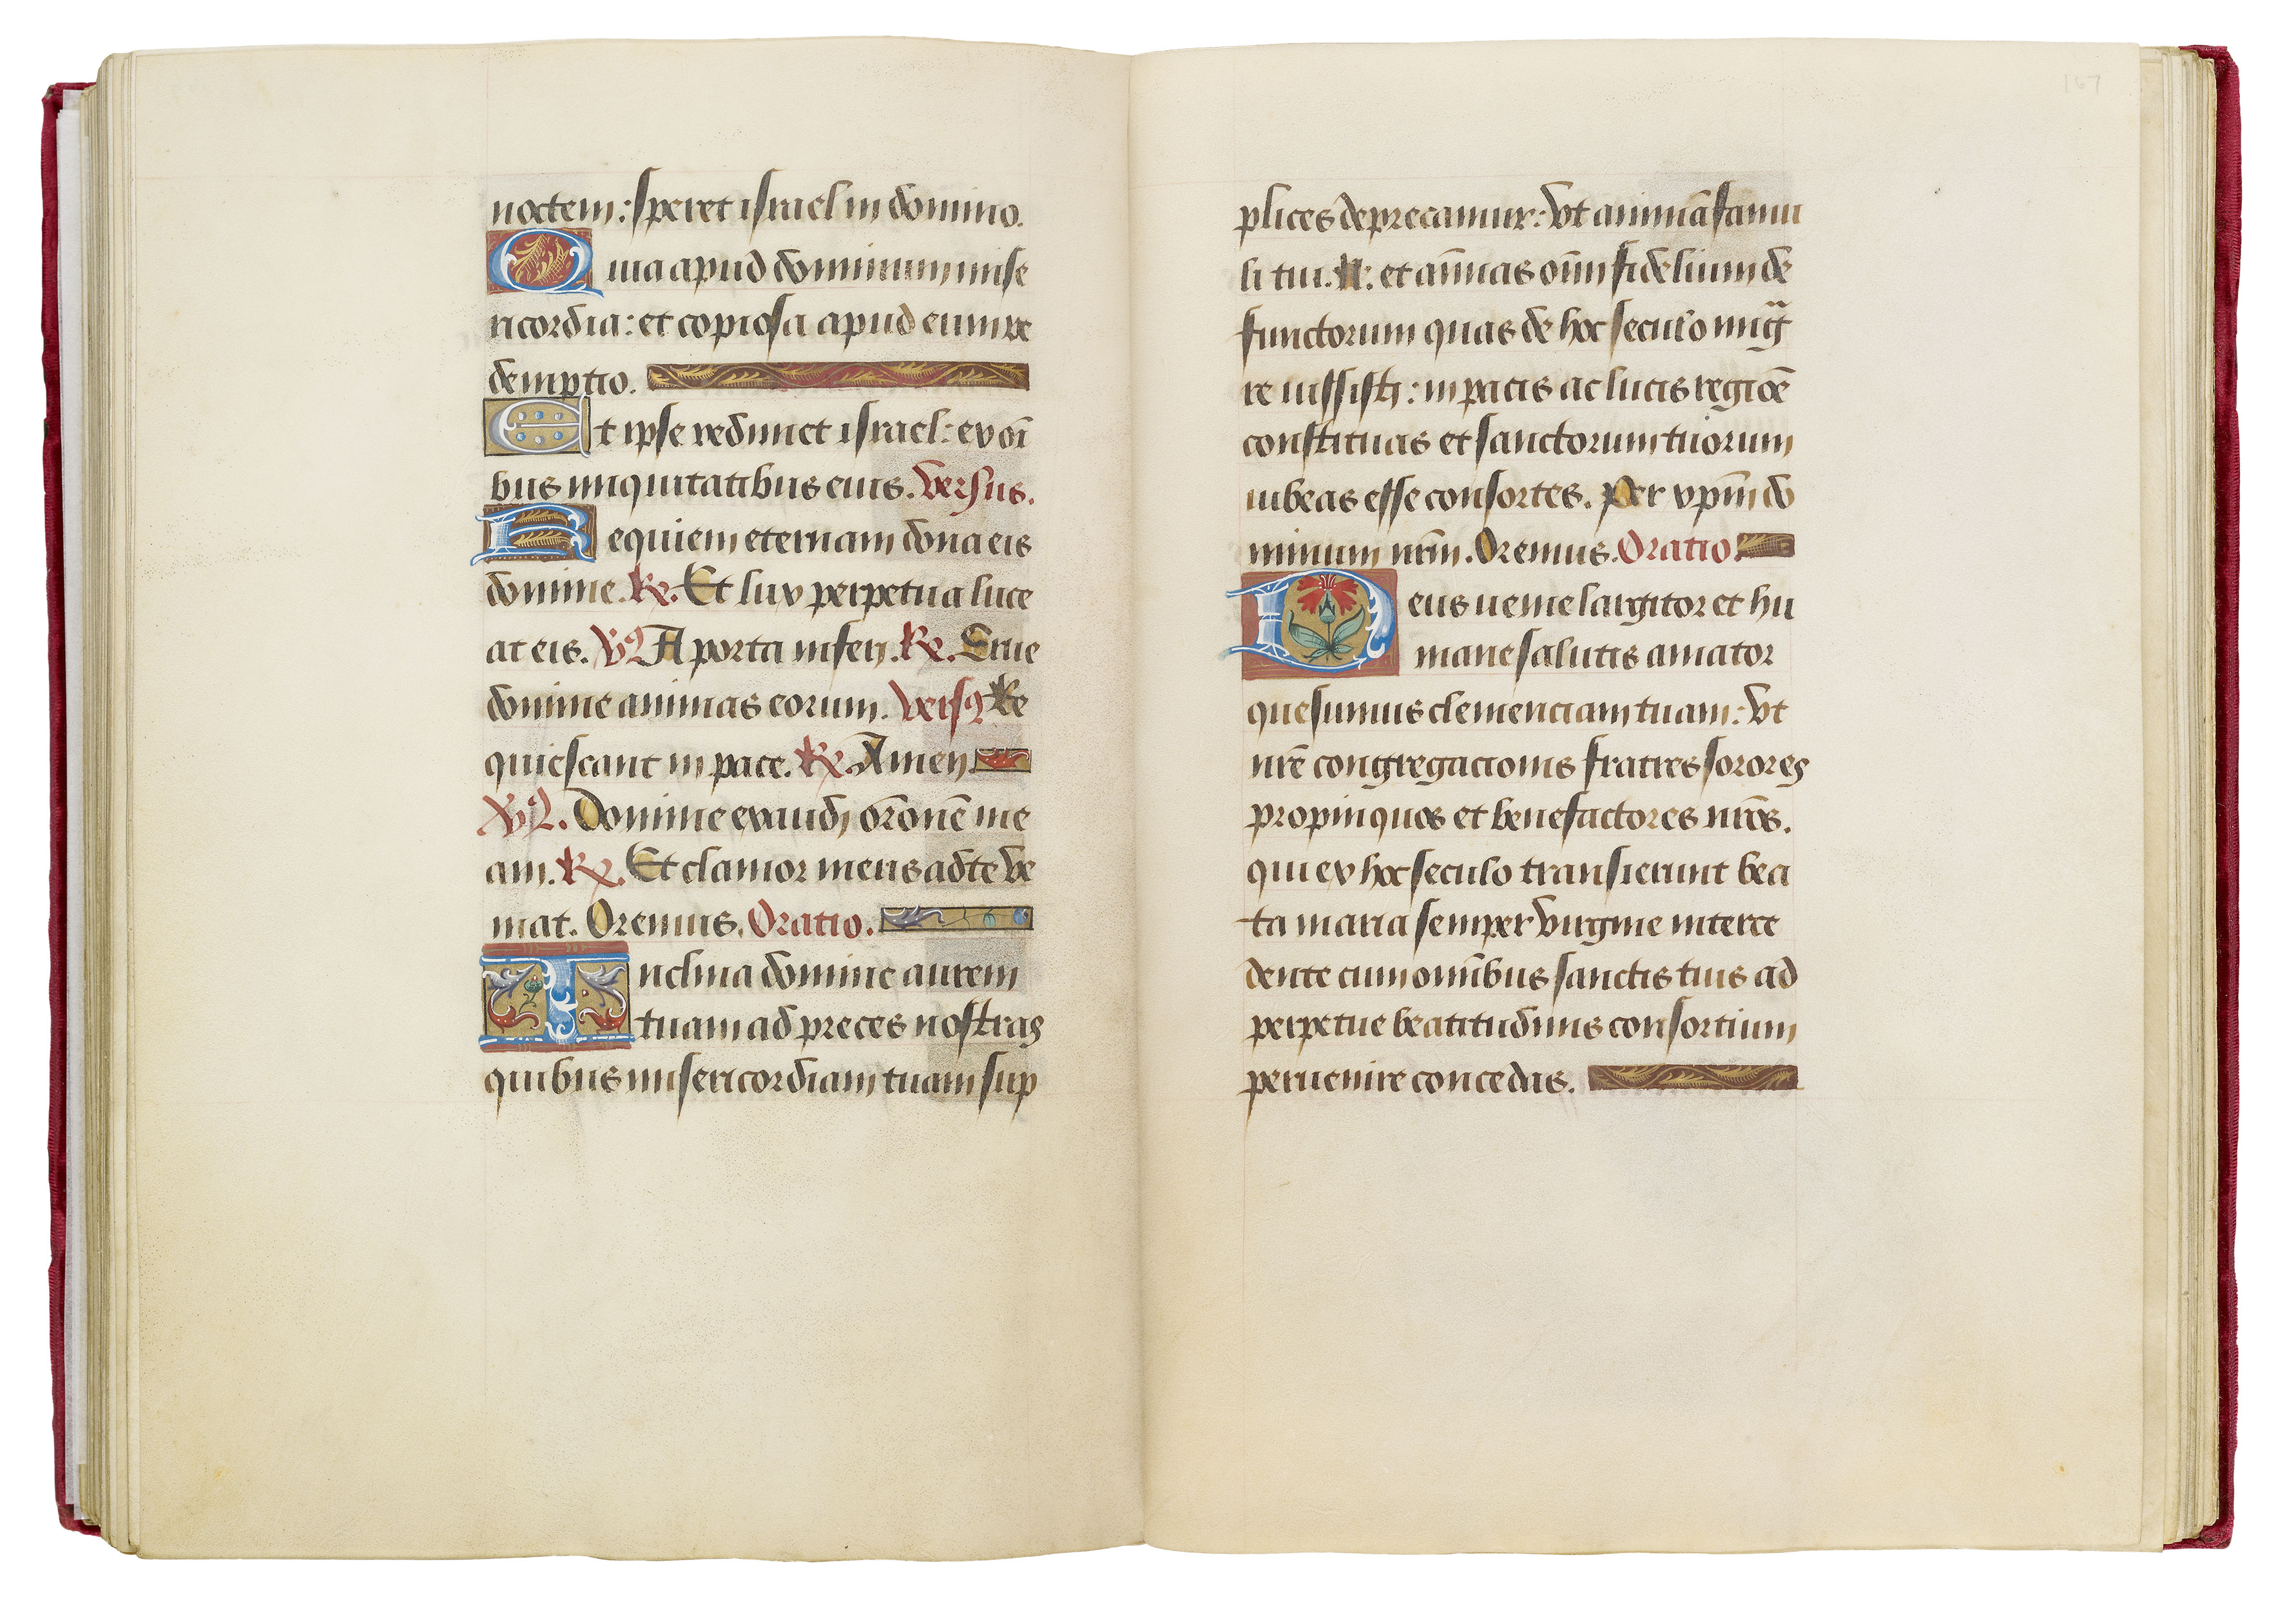 noctem: speret israel in domino.
Quia apud dominum mise
ricordia: et copiosa apud eum re
demptio.
Et ipse redimet israel: ex oī
bus iniquitatibus eius. Versus.
Requiem eternam dona eis
domine. R. Et lux perpetua luce
at eis. V9 A porta inferi. R. Erue
domine animas eorum. Vers9 Re
quiescant in pace. R. Amen
V9. Domine exaudi orōnē me
am. R. Et clamor meus ad te ve
niat. Oremus. Oratio.
Inclina domine aurem
tuam ad preces nostras
quibus misericordiam tuam sup
167
plices deprecamur: Vt animā famu
li tui. N: et aīmas oīm fidelium de
functorum quas de hoc seculo mig
re iussisti: in pacis ac lucis regiōe
constituas et sanctorum tuorum
iubeas esse consortes. Per xpm̄ do
minum nrm̄. Oremus. Oratio.
Deus venie largitor et hu
mane salutis amator
quesumus clemenciam tuam: Vt
nrē congregacionis fratres sorores
propinquos et benefactores nrōs.
qui ex hoc seculo transierunt bea
ta maria semper virgine interce
dente cum omībus sanctis tuis ad
perpetue beatitudinis consortium
peruenire concedas.